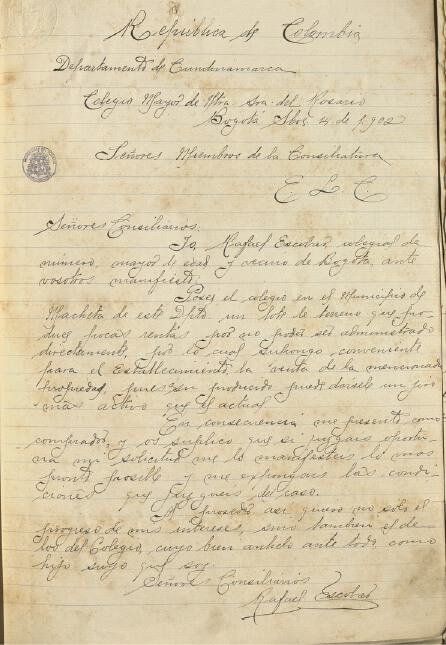 República de Colombia
Departamento de Cundinamarca
Colegio Mayor de Ntra. Sra. del Rosario
Bogotá 4 de 1902
Señores Miembros de la Consiliatura
E. L. C.
Señores Consiliarios:
Yo, Rafael Escobar, colegial de
número, mayor de edad y vecino de Bogotá, ante
vosotros manifiesto:
Posee el colegio en el Municipio de
Machetá de este Dpto. un lote de terreno que pro-
duce pocas rentas por no poder ser administrado
directamente, por lo cual supongo conveniente
para el Establecimiento la venta de la mencionada
propiedad, pues su producido puede dársele un giro
más activo que el actual.
En consecuencia me presento como
comprador y os suplico que si juzgais oportu-
na mi solicitud me lo manifesteis lo más
pronto posible y me expongais las condi-
ciones que del caso.
Al proceder así quiero no sólo el
progreso de mis intereses, sino tambien el de
los del Colegio, cuyo bien anhelo ante todo como
hijo suyo que soy.
Señores Consiliarios
Rafael Escobar